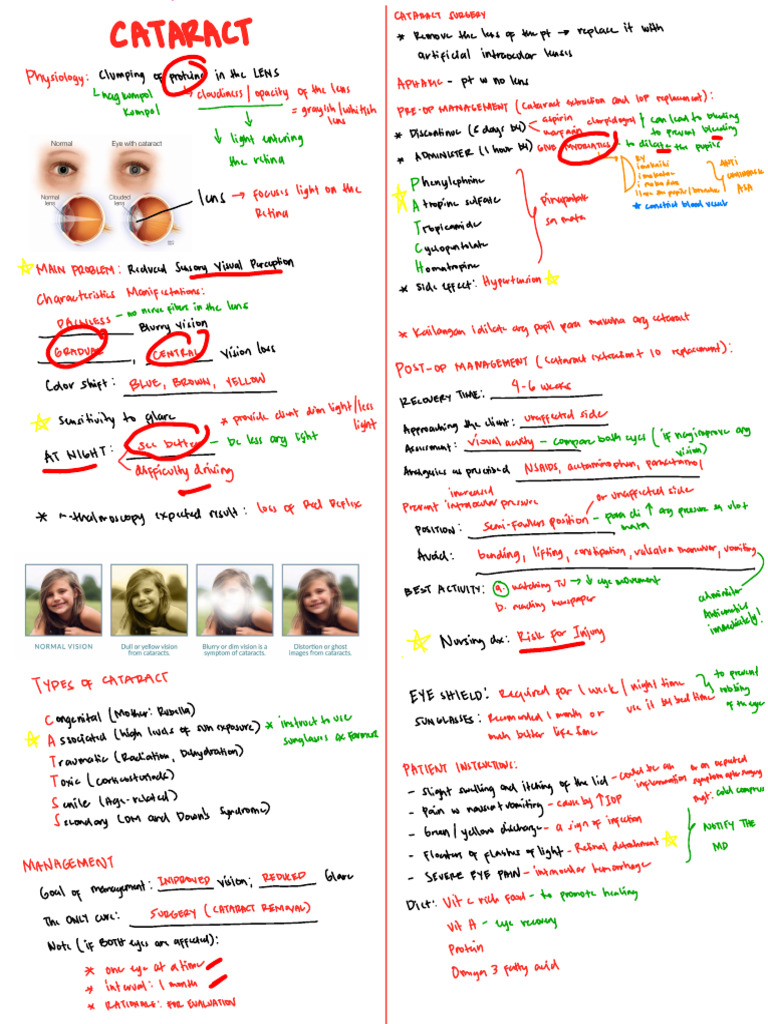 CATARACT
Physiology: Clumping of proteins in the LENS
↳ nagkumpol kumpol
↳ cloudiness / opacity of the lens
= grayish/whitish lens
↓ light entering the retina
Normal
Eye with cataract
Normal lens
Clouded lens
lens → Focuses light on the Retina
MAIN PROBLEM: Reduced Sensory Visual Perception
Characteristics Manifestations:
PAINLESS – no nerve fibers in the lens
Blurry vision
GRADUAL, CENTRAL Vision loss
Color shift: BLUE, BROWN, YELLOW
Sensitivity to glare
* provide client dim light/less light
AT NIGHT: see better – bc less ang light
difficulty driving
thalmoscopy expected result: loss of Red Reflex
NORMAL VISION
Dull or yellow vision from cataracts.
Blurry or dim vision is a symptom of cataracts.
Distortion or ghost images from cataracts.
TYPES OF CATARACT
Congenital (Mother: Rubella)
Associated (high levels of sun exposure) * instruct to use sunglasses ex Farmers
Traumatic (Radiation, Dehydration)
Toxic (corticosteroids)
Senile (Age-related)
Secondary (DM and Down's Syndrome)
MANAGEMENT
Goal of management: IMPROVED vision; REDUCED Glare
The ONLY cure: SURGERY (CATARACT REMOVAL)
Note (if BOTH eyes are affected):
* one eye at a time
* interval: 1 month
* RATIONALE: FOR EVALUATION
CATARACT SURGERY
* Remove the lens of the pt → replace it with
artificial intraocular lenses
APHAKIC – pt w no lens
PRE-OP MANAGEMENT (Cataract extraction and IOP replacement):
* Discontinue (5 days by) aspirin clopidogrel warfarin } can lead to bleeding
to prevent bleeding
* ADMINISTER (1 hour by) GIVE MYDRIATICS – to dilate the pupils
Phenylephrine
Atropine sulfate
Tropicamide
Cyclopentolate
Homatropine
Pinapatak sa mata
* constrict blood vessel
* Side effect: Hypertension
* Kailangan idilate ang pupil para makuha ang cataract
POST-OP MANAGEMENT (cataract extraction + IO replacement):
RECOVERY TIME: 4-6 weeks
Approaching the client: unaffected side
Assessment: visual acuity – compare both eyes (if nag improve ang vision)
Analgesics as prescribed NSAIDS, acetaminophen, paracetamol
Prevent increased intraocular pressure
POSITION: Semi-Fowlers position or unaffected side – para di ↑ ang pressure sa mata
Avoid: bending, lifting, constipation, valsalva maneuver, vomiting
administer Antiemetics immediately!
BEST ACTIVITY: a. watching TV → ↓ eye movement
b. reading newspaper
Nursing dx: Risk for Injury
EYE SHIELD: Required for 1 week / night time use it by bed time
to prevent rubbing of the eye
SUNGLASSES: Recommended 1 month or much better life time
PATIENT INSTRUCTIONS:
- Slight swelling and itching of the lid – could be an inflammation or an expected symptom after surgery
mgt: cold compress
- Pain w nausea + vomiting – cause by ↑ IOP
- Green/yellow discharge – a sign of infection
- Floaters of flashes of light – Retinal detachment
- SEVERE EYE PAIN – intraocular hemorrhage
NOTIFY THE MD
Diet: Vit C rich food – to promote healing
Vit A – eye recovery
Protein
Omega 3 fatty acid